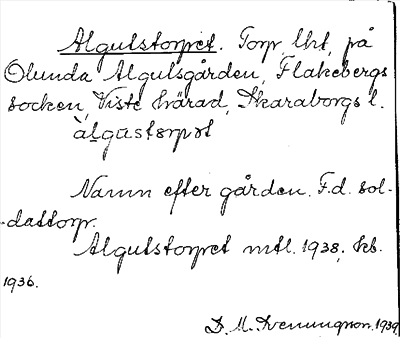 Algutstorpet. Torp, lht, på
Olunda Algutsgården, Flakebergs
socken, Viste härad, Skaraborgs l.
àlgastorpət
Namn efter gården. F.d. sol-
-dattorp.
Algutstorpet mtl. 1938, kb.
1936.
D. M. Svenungson. 1939